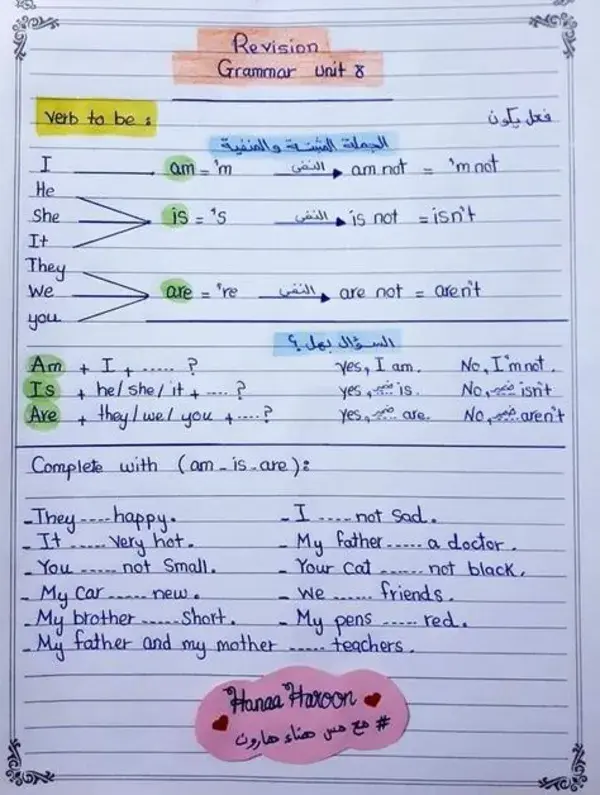 Revision
Grammar Unit 8
Verb to be :
فعل يكون
الجملة المثبتة والمنفية
I am = 'm النفى am not = 'm not
He
She is = 's النفى is not = isn't
It
They
We are = 're النفى are not = aren't
you
السؤال بهل ؟
Am + I + ..... ? yes, I am. No, I'm not.
Is + he/ she/ it + ....? yes, ضمير is. No, ضمير isn't
Are + they/ we/ you + ....? yes, ضمير are. No, ضمير aren't
Complete with (am - is - are):
- They ---- happy. - I ---- not sad.
- It ----- very hot. - My father ----- a doctor.
- You ----- not small. - Your cat ------ not black.
- My car ------ new. - We ------ friends.
- My brother ----- short. - My pens ----- red.
- My father and my mother ----- teachers.
Hanaa Haroon
# مع مس هناء هارون